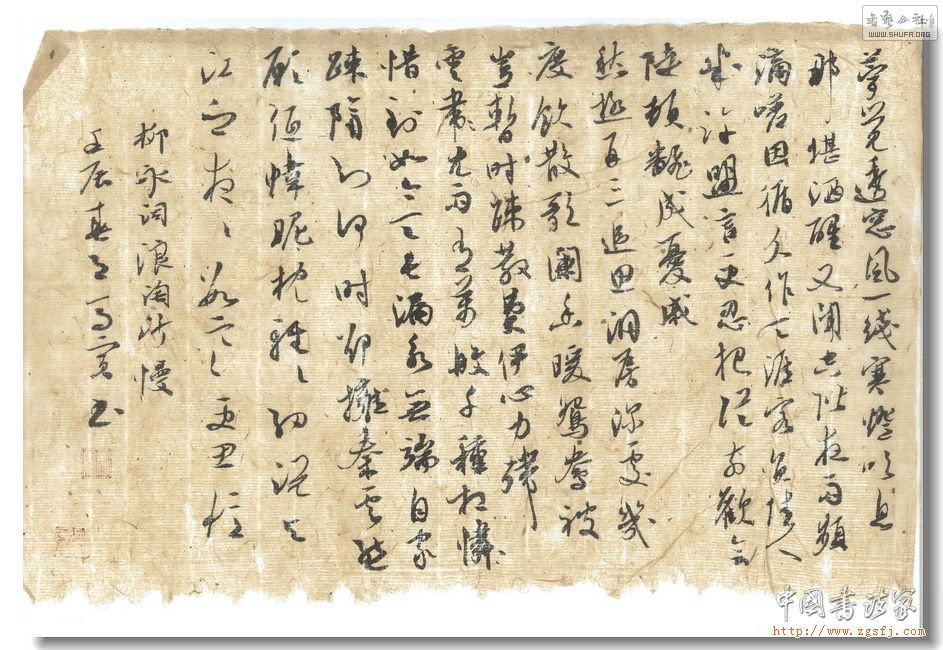 夢覺透窗風一线寒燈吹息
那堪酒醒又聞空階夜雨頻
滴嗟因循久作天涯客負佳人
幾許盟言更忍把從前歡會
陡頓翻成憂戚
愁極再三追思洞房深處幾
度飲散歌闌香暖鴛鴦被
豈暫時疎散費伊心力殢
雲尤雨有萬般千種相憐
惜到如今天長漏永無端自家
疎隔知何時卻擁秦雲態
願低幃昵枕輕輕細說與
江鄉夜夜數寒更思憶
柳永詞浪淘沙慢
壬辰春書
書藝公社
WWW.SHUFA.ORG
中國書法家
http://www.zgsfj.com